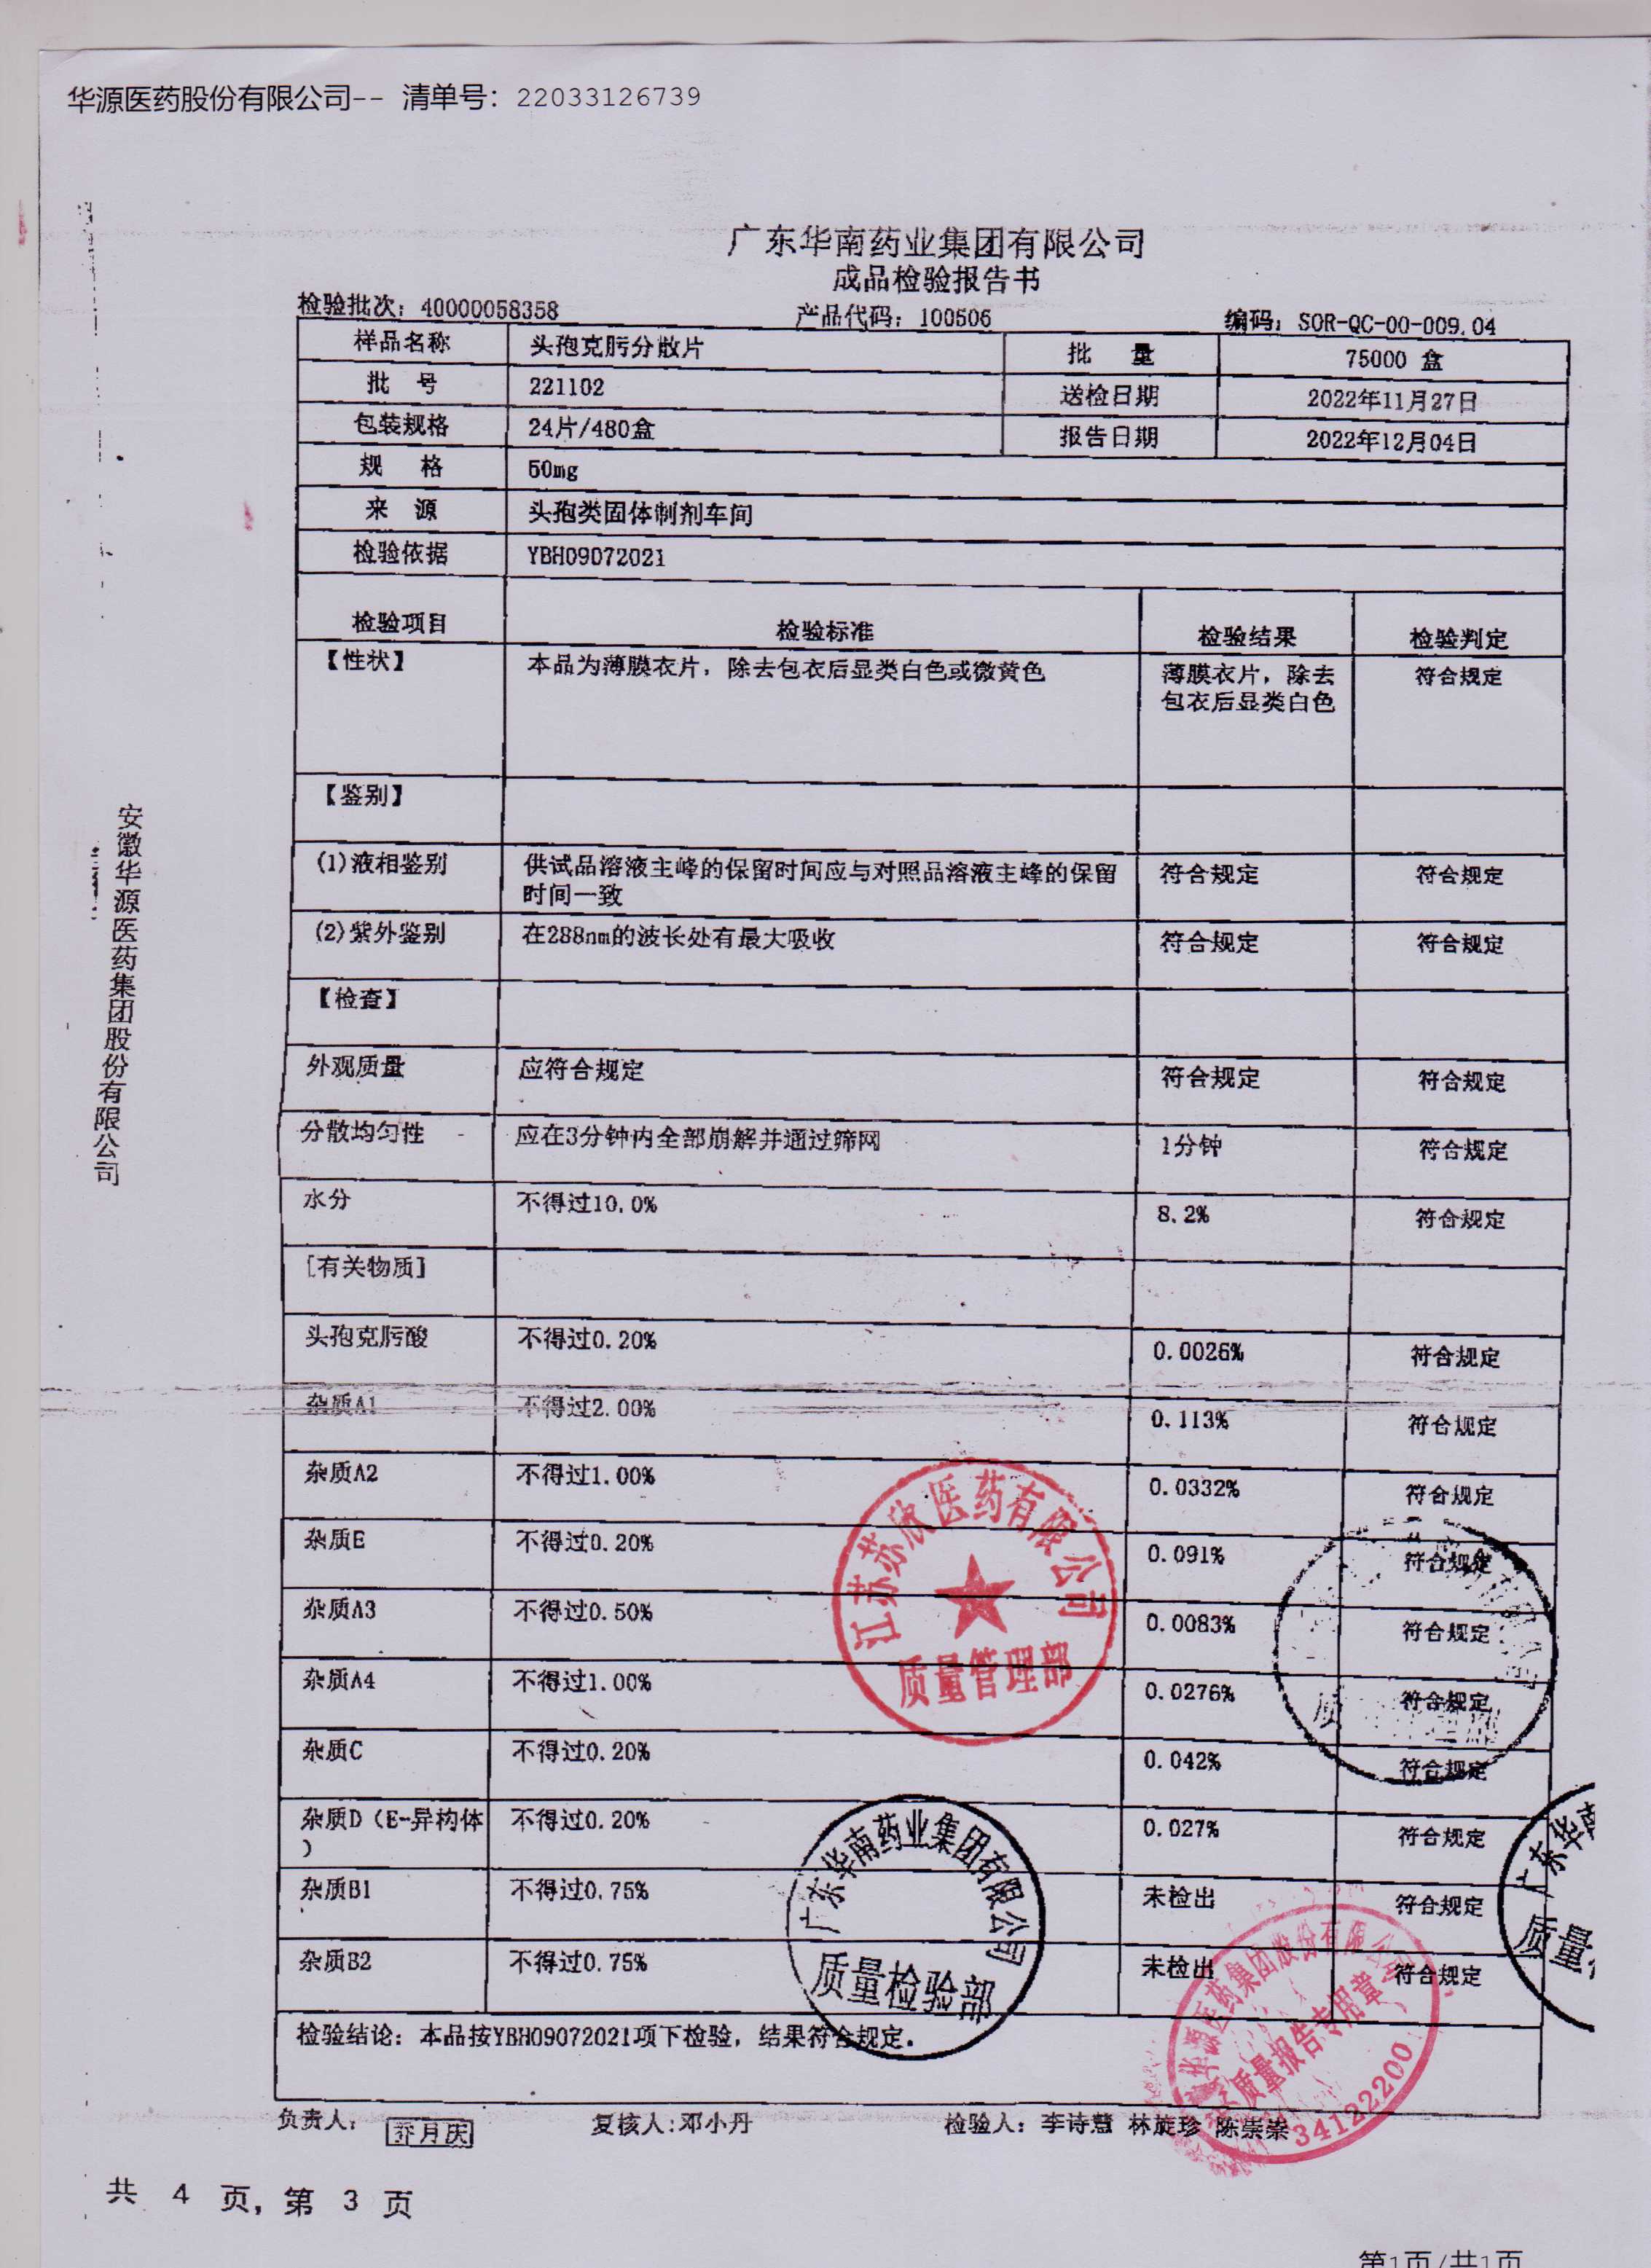 华源医药股份有限公司-- 清单号：22033126739
广东华南药业集团有限公司
成品检验报告书
检验批次：40000058358 产品代码：100506 编码：SOR-QC-00-009.04
样品名称 头孢克肟分散片 批 量 75000 盒
批 号 221102 送检日期 2022年11月27日
包装规格 24片/480盒 报告日期 2022年12月04日
规 格 50mg
来 源 头孢类固体制剂车间
检验依据 YBH09072021
检验项目 检验标准 检验结果 检验判定
【性状】 本品为薄膜衣片，除去包衣后显类白色或微黄色 薄膜衣片，除去 符合规定
包衣后显类白色
【鉴别】
(1)液相鉴别 供试品溶液主峰的保留时间应与对照品溶液主峰的保留 符合规定 符合规定
时间一致
(2)紫外鉴别 在288nm的波长处有最大吸收 符合规定 符合规定
【检查】
外观质量 应符合规定 符合规定 符合规定
分散均匀性 应在3分钟内全部崩解并通过筛网 1分钟 符合规定
水分 不得过10.0% 8.2% 符合规定
[有关物质]
头孢克肟酸 不得过0.20% 0.0026% 符合规定
杂质A1 不得过2.00% 0.113% 符合规定
杂质A2 不得过1.00% 0.0332% 符合规定
杂质E 不得过0.20% 0.091% 符合规定
杂质A3 不得过0.50% 0.0083% 符合规定
杂质A4 不得过1.00% 0.0276% 符合规定
杂质C 不得过0.20% 0.042% 符合规定
杂质D（E-异构体 不得过0.20% 0.027% 符合规定
）
杂质B1 不得过0.75% 未检出 符合规定
杂质B2 不得过0.75% 未检出 符合规定
检验结论：本品按YBH09072021项下检验，结果符合规定。
负责人： 乔月庆 复核人：邓小丹 检验人：李诗慧 林旋珍 陈崇崇
共 4 页，第 3 页
第1页/共1页
安徽华源医药集团股份有限公司
江苏苏欣医药有限公司
质量管理部
广东华南药业集团有限公司
质量检验部
广东华南
质量
华源医药集团股份有限公司
质量报告专用章
34122200